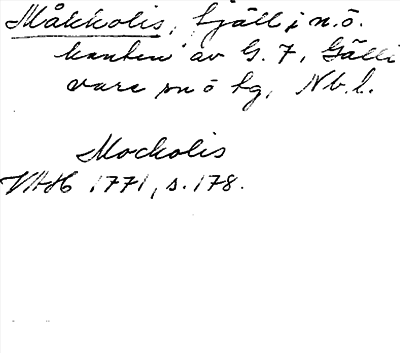 Måkkolis, fjäll i n.ö.
kanten av G. 7, Gälli
vare sn ö fg, Nb.l.
Mockolis
VAH 1771, s. 178.